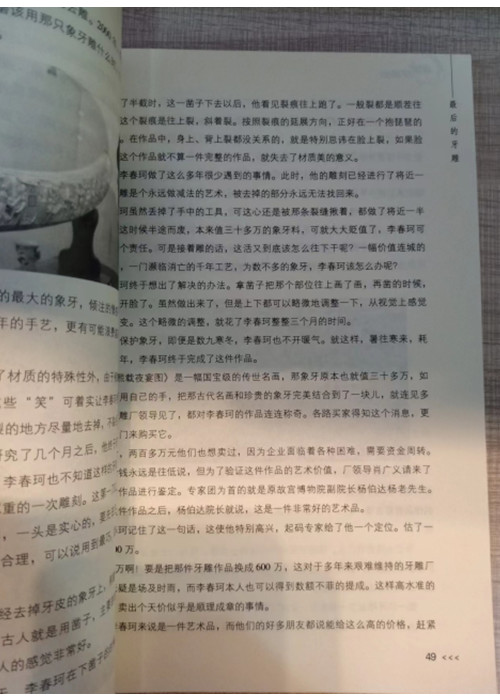 了半截时,这一凿子下去以后,他看见裂痕往上跑了。一般裂都是顺茬往
这个裂痕是往上裂,斜着裂。按照裂痕的延展方向,正好在一个抱琵琶的
。在作品中,身上、背上裂都没关系的,就是特别忌讳在脸上裂,如果脸
这个作品就不算一件完整的作品,就失去了材质美的意义。
李春珂做了这么多年很少遇到的事情。此时,他的雕刻已经进行了将近一
雕是个永远做减法的艺术,被去掉的部分永远无法找回来。
珂虽然丢掉了手中的工具,可这心还是被那条裂缝揪着,都做了将近一半
这时候半途而废,本来值三十多万的象牙料,可就大大贬值了,李春珂可
个责任。可是接着雕的话,这活又到底该怎么往下干呢?一幅价值连城的
,一门濒临消亡的千年工艺,为数不多的象牙,李春珂该怎么办呢?
珂终于想出了解决的办法。拿凿子把那个部位往上画了画,再凿的时候,
开脸了。虽然做出来了,但是上下都可以略微地调整一下,从视觉上感觉
变。这个略微的调整,就花了李春珂整整三个月的时间。
保护象牙,即便是数九寒冬,李春珂也不开暖气。就这样,暑往寒来,耗
年,李春珂终于完成了这件作品。
熙载夜宴图》是一幅国宝级的传世名画,那象牙原本也就值三十多万,如
用自己的手,把那古代名画和珍贵的象牙完美结合到了一块儿,就连见多
雕厂领导见了,都对李春珂的作品连连称奇。各路买家得知这个消息,更
门来购买它。
,两百多万元他们也想卖过,因为企业面临着各种困难,需要资金周转。
钱永远是往低说,但为了验证这件作品的艺术价值,厂领导肖广义请来了
作品进行鉴定。专家团为首的就是原故宫博物院副院长杨伯达杨老先生。
件作品之后,杨伯达院长就说,这是一件非常好的艺术品。
珂记住了这一句话,这使他特别高兴,起码专家给了他一个定位。估了一
00 万。
万啊!要是把那件牙雕作品换成 600 万,这对于多年来艰难维持的牙雕厂
疑是场及时雨,而李春珂本人也可以得到数额不菲的提成。这样高水准的
卖出个天价似乎是顺理成章的事情。
李春珂来说是一件艺术品,而他们的好多朋友都说能给这么高的价格,赶紧
49 <<<
最后的牙雕
该用那只象牙雕什么
的最大的象牙,倾注
年的手艺,更有可能
了材质的特殊性外,由
些“笑”可着实让李春
裂的地方尽量地去掉,不
研究了几个月之后,他终
李春珂也不知道这样
重的一次雕刻。这第一
,一头是实心的,
合理,可以说用到最
经去掉牙皮的象牙上,
古人就是用凿子,
人的感觉非常好。
李春珂在下凿子的